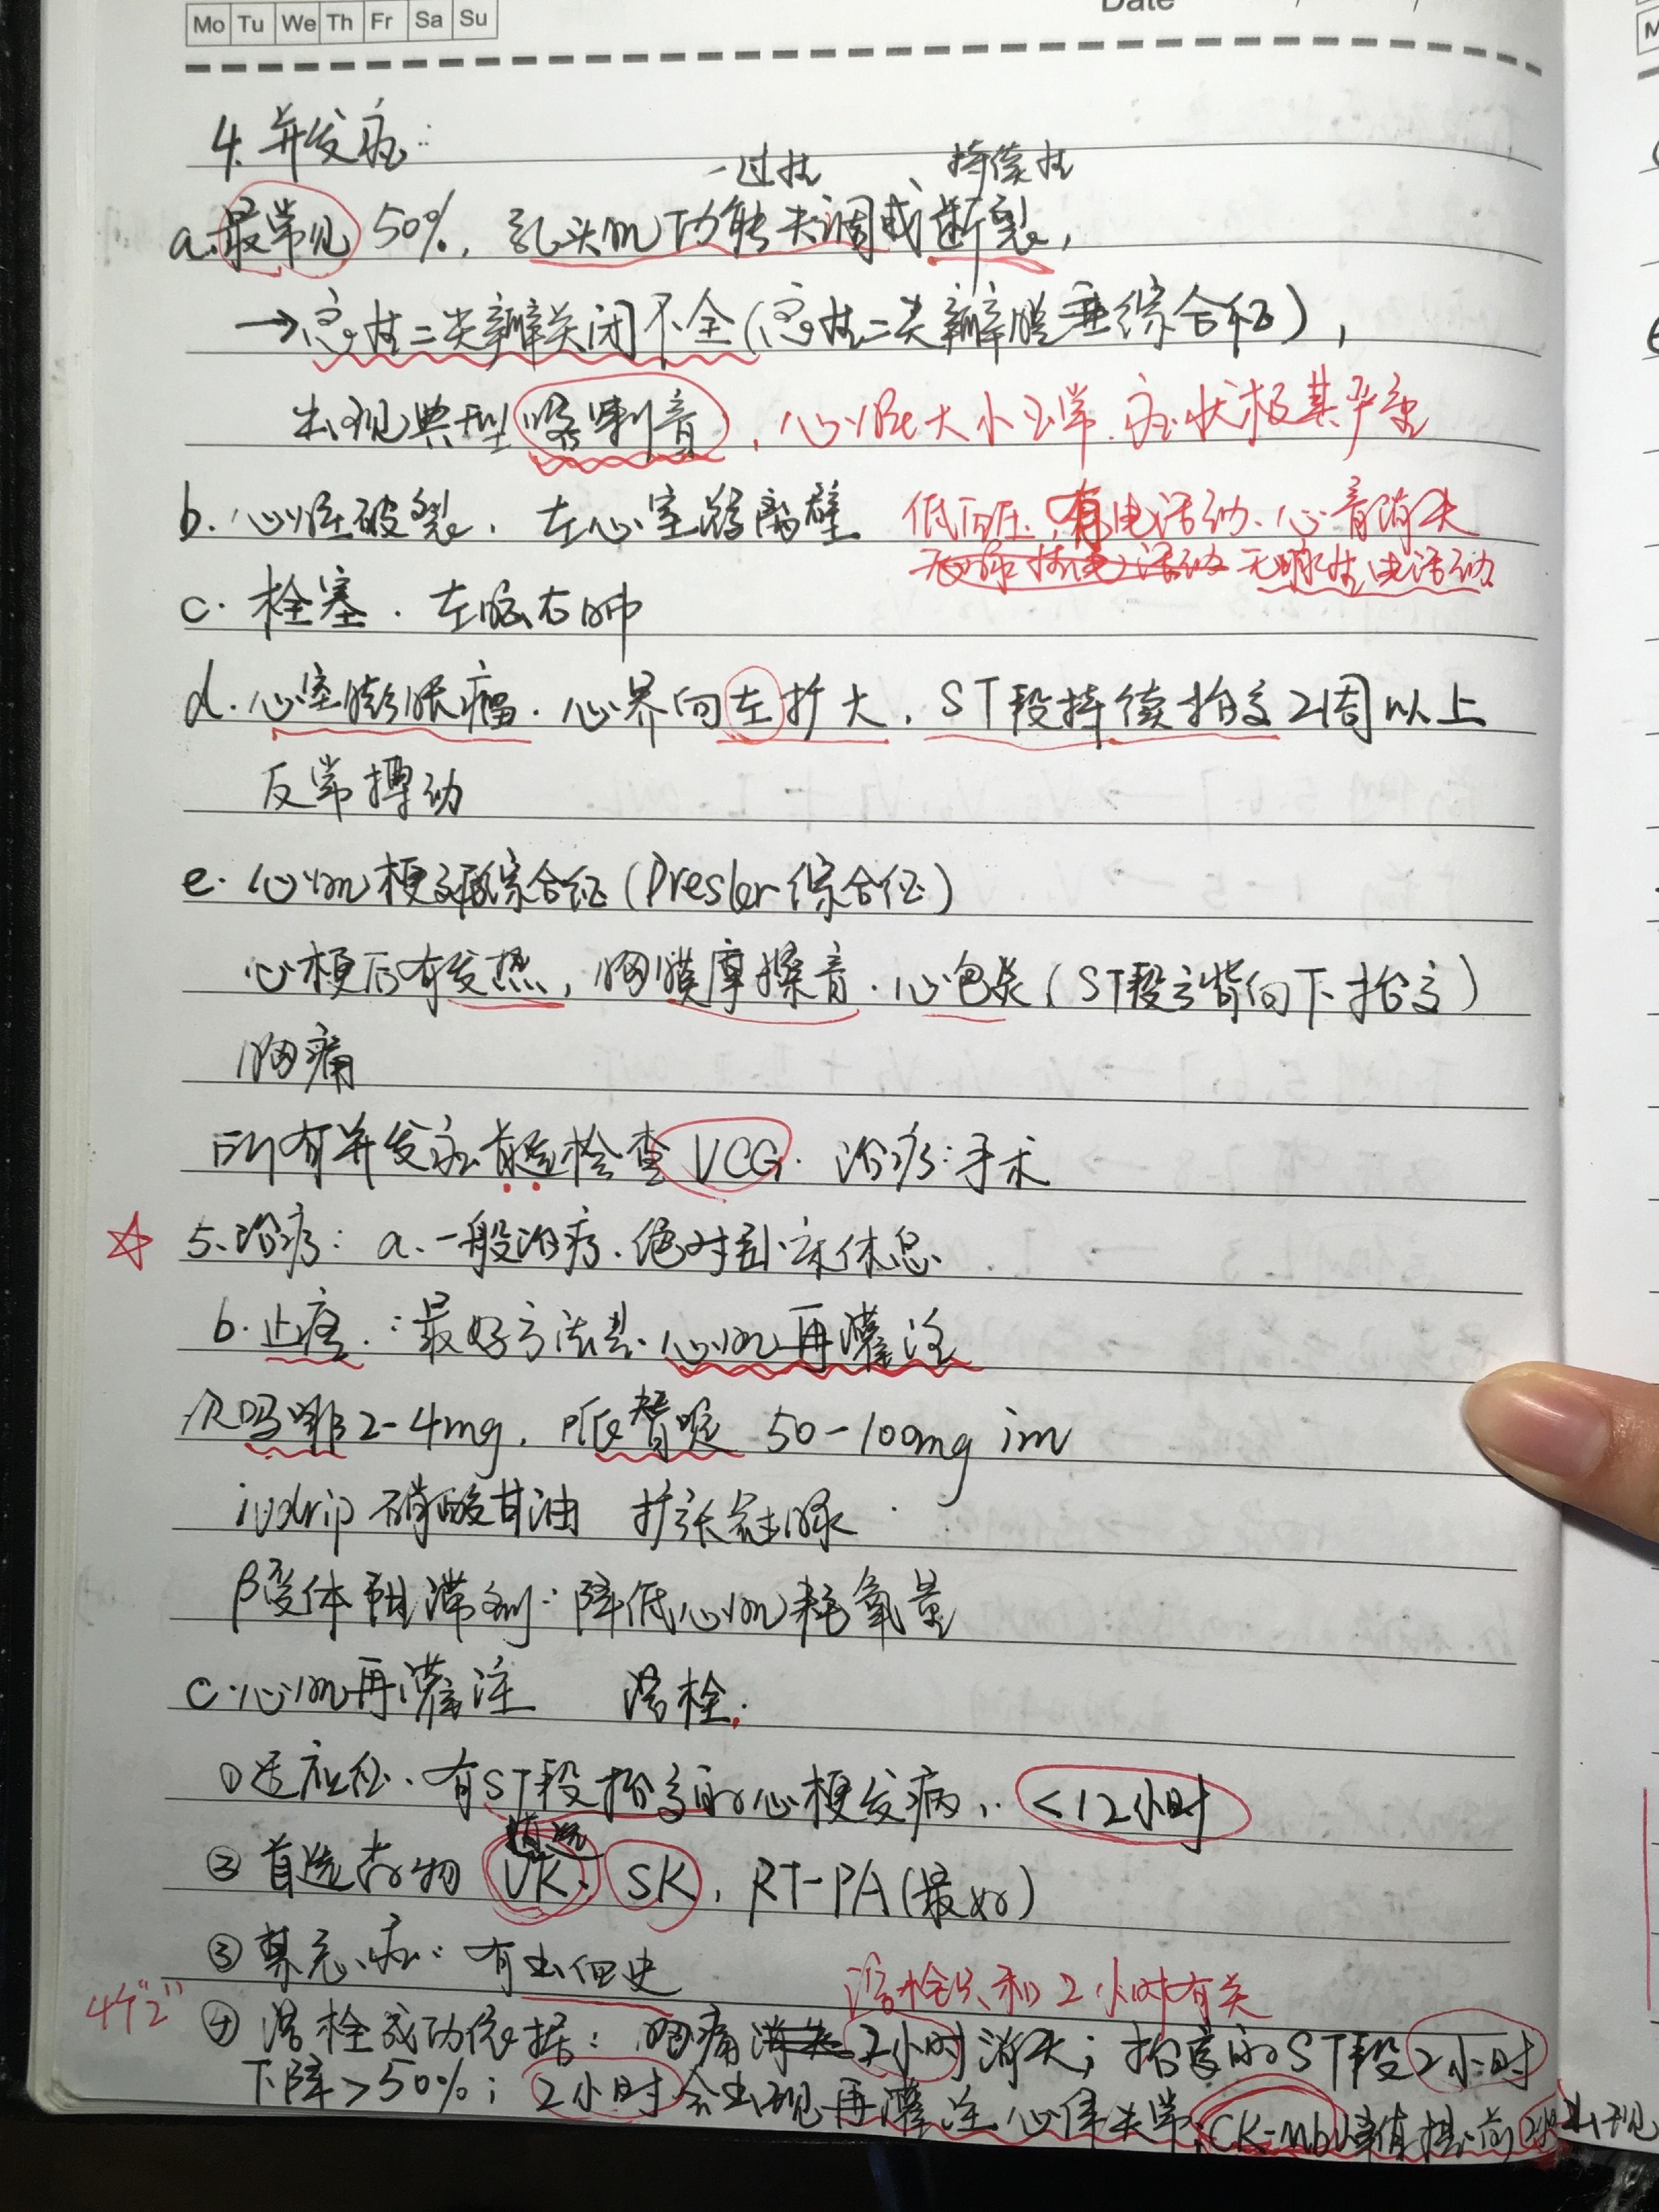 Mo Tu We Th Fr Sa Su
Date / /
4. 并发症:
一过性、持续性
a. 最常见 50%, 乳头m功能失调或断裂,
→急性二尖瓣关闭不全(急性二尖瓣脱垂综合征),
出现典型喀喇音, 心脏大小正常. 症状极其严重
b. 心脏破裂. 左心室游离壁 低血压, 有电活动、心音消失
无脉性电活动
c. 栓塞. 左脑右肺
d. 心室膨胀瘤. 心界向左扩大, ST段持续抬高2周以上
反常搏动
e. 心m梗死后综合征(Dresler综合征)
心梗后有发热, 胸膜摩擦音. 心包炎(ST段弓背向下抬高)
胸痛
所有并发症首选检查UCG. 治疗:手术
5. 治疗: a. 一般治疗. 绝对卧床休息
b. 止疼.:最好方法是心m再灌注
次吗啡2-4mg. 哌替啶 50-100mg im
ivdrip 硝酸甘油 扩张冠脉
β受体阻滞剂: 降低心m耗氧量
c. 心m再灌注 溶栓.
①适应征. 有ST段抬高的心梗发病, <12小时
首选
②首选药物 UK、SK, RT-PA(最好)
③禁忌症: 有出血史
溶栓只和2小时有关
4个"2"
④溶栓成功依据: 胸痛2小时消失; 抬高的ST段2小时
下降>50%; 2小时会出现再灌注心律失常; CK-Mb峰值提前出现